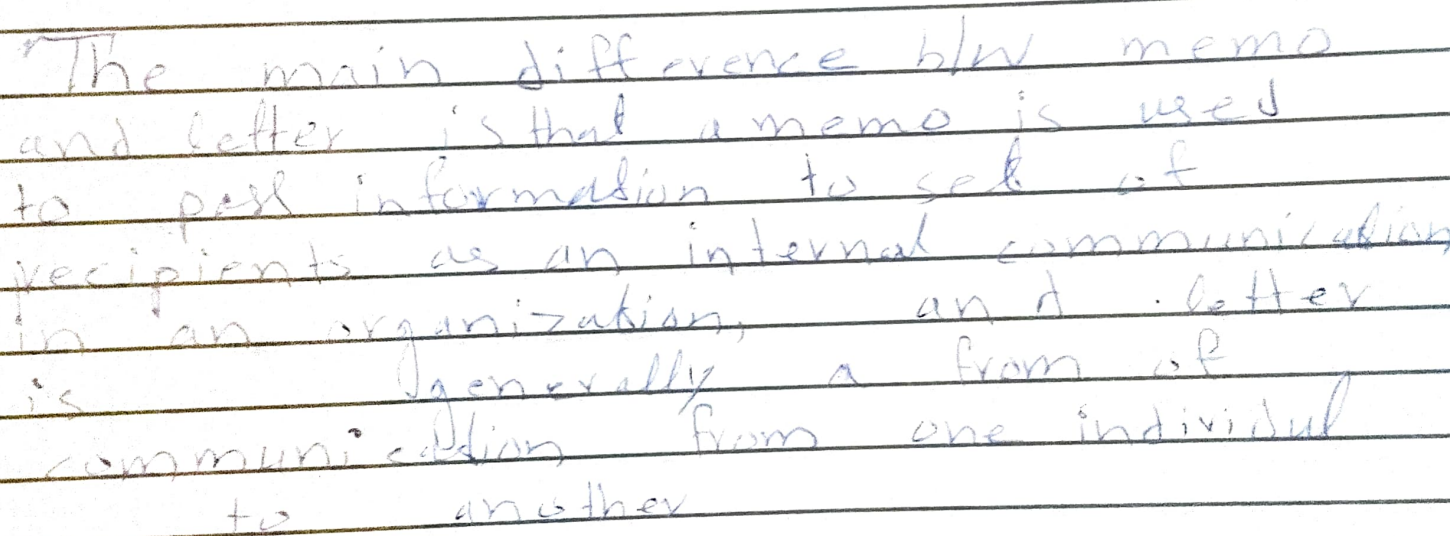 "The main difference b/w memo
and letter is that a memo is used
to pass information to set of
recipients as an internal communication
in an organization, and letter
is generally a from of
communication from one individul
to another